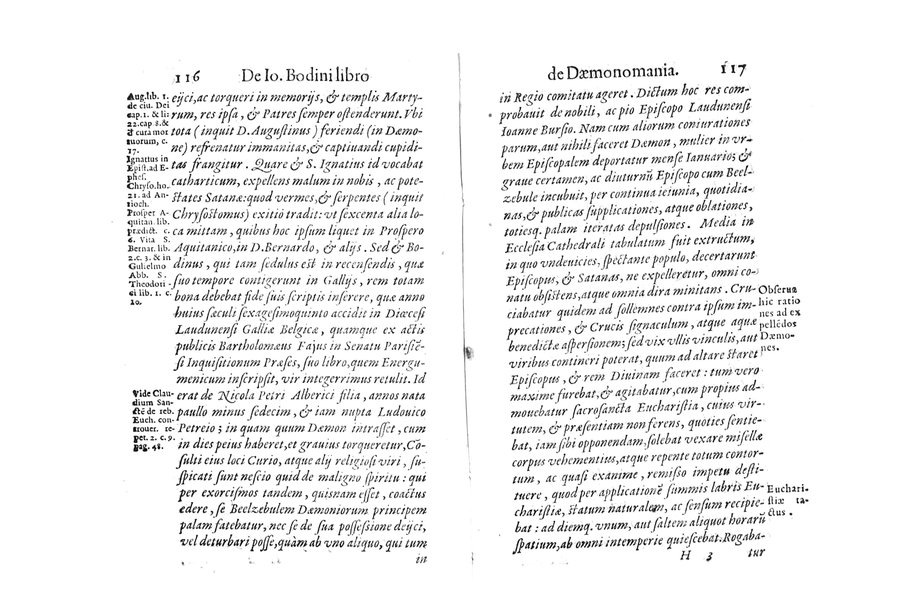 116 De Io. Bodini libro
Aug. lib. 1.
de ciu. Dei
cap. 1. & li:
22. cap. 8. &
& cura mor
tuorum, c.
17.
Ignatius in
Epist. ad E-
phes.
Chryso. ho.
21. ad An-
tioch.
Prosper A-
quitan. lib.
prædict. c.
6. Vita S.
Bernar. lib.
2. c. 3. & in
Gulielmo
Abb. S.
Theodori -
ci lib. 1. c.
10.
Vide Clau-
dium San-
ctē de reb.
Euch. con-
trouer. re-
pet. 2. c. 9.
pag. 48.
eijci, ac torqueri in memorijs, & templis Marty-
rum, res ipsa, & Patres semper ostenderunt. Vbi
tota (inquit D. Augustinus) feriendi (in Dæmo-
ne) refrenatur immanitas, & captiuandi cupidi-
tas frangitur. Quare & S. Ignatius id vocabat
catharticum, expellens malum in nobis, ac pote-
states Satanæ: quod vermes, & serpentes (inquit
Chrysostomus) exitio tradit: vt sexcenta alia lo-
ca mittam, quibus hoc ipsum liquet in Prospero
Aquitanico, in D. Bernardo, & alijs. Sed & Bo-
dinus, qui tam sedulus est in recensendis, quæ
suo tempore contigerunt in Gallijs, rem totam
bona debebat fide suis scriptis inserere, quæ anno
huius sæculi sexagesimoquinto accidit in Diœcesi
Laudunensi Galliæ Belgicæ, quamque ex actis
publicis Bartholomæus Fajus in Senatu Parisiē-
si Inquisitionum Præses, suo libro, quem Energu-
menicum inscripsit, vir integerrimus retulit. Id
erat de Nicola Petri Alberici filia, annos nata
paullo minus sedecim, & iam nupta Ludouico
Petreio; in quam quum Dæmon intrasset, cum
in dies peius haberet, et grauius torqueretur, Cō-
sulti eius loci Curio, atque alij religiosi viri, su-
spicati sunt nescio quid de maligno spiritu: qui
per exorcismos tandem, quisnam esset, coactus
edere, se Beelzebulem Dæmoniorum principem
palam fatebatur, nec se de sua possessione deijci,
vel deturbari posse, quàm ab vno aliquo, qui tum
in
de Dæmonomania. 117
in Regio comitatu ageret. Dictum hoc res com-
probauit de nobili, ac pio Episcopo Laudunensi
Ioanne Bursio. Nam cum aliorum coniurationes
parum, aut nihili faceret Dæmon, mulier in vr-
bem Episcopalem deportatur mense Ianuario; &
graue certamen, ac diuturnū Episcopo cum Beel-
zebule incubuit, per continua ieiunia, quotidia-
nas, & publicas supplicationes, atque oblationes,
totiesq. palam iteratas depulsiones. Media in
Ecclesia Cathedrali tabulatum fuit extructum,
in quo vndeuicies, spectante populo, decertarunt
Episcopus, & Satanas, ne expelleretur, omni co-
natu obsistens, atque omnia dira minitans. Cru-
ciabatur quidem ad sollemnes contra ipsum im-
precationes, & Crucis signaculum, atque aquæ
benedictæ aspersionem; sed vix vllis vinculis, aut
viribus contineri poterat, quum ad altare staret
Episcopus, & rem Diuinam faceret: tum vero
maxime furebat, & agitabatur, cum propius ad-
mouebatur sacrosancta Eucharistia, cuius vir-
tutem, & præsentiam non ferens, quoties sentie-
bat, iam sibi opponendam, solebat vexare misellæ
corpus vehementius, atque repente totum contor-
tum, ac quasi exanime, remisso impetu desti-
tuere, quod per applicationē summis labris Eu-
charistiæ, statum naturalem, ac sensum recipie-
bat: ad diemq. vnum, aut saltem aliquot horarū
spatium, ab omni intemperie quiescebat. Rogaba-
Obserua
hic ratio
nes ad ex
pellēdos
Dæmo-
nes.
Euchari-
stiæ ta-
ctus.
H 3 tur